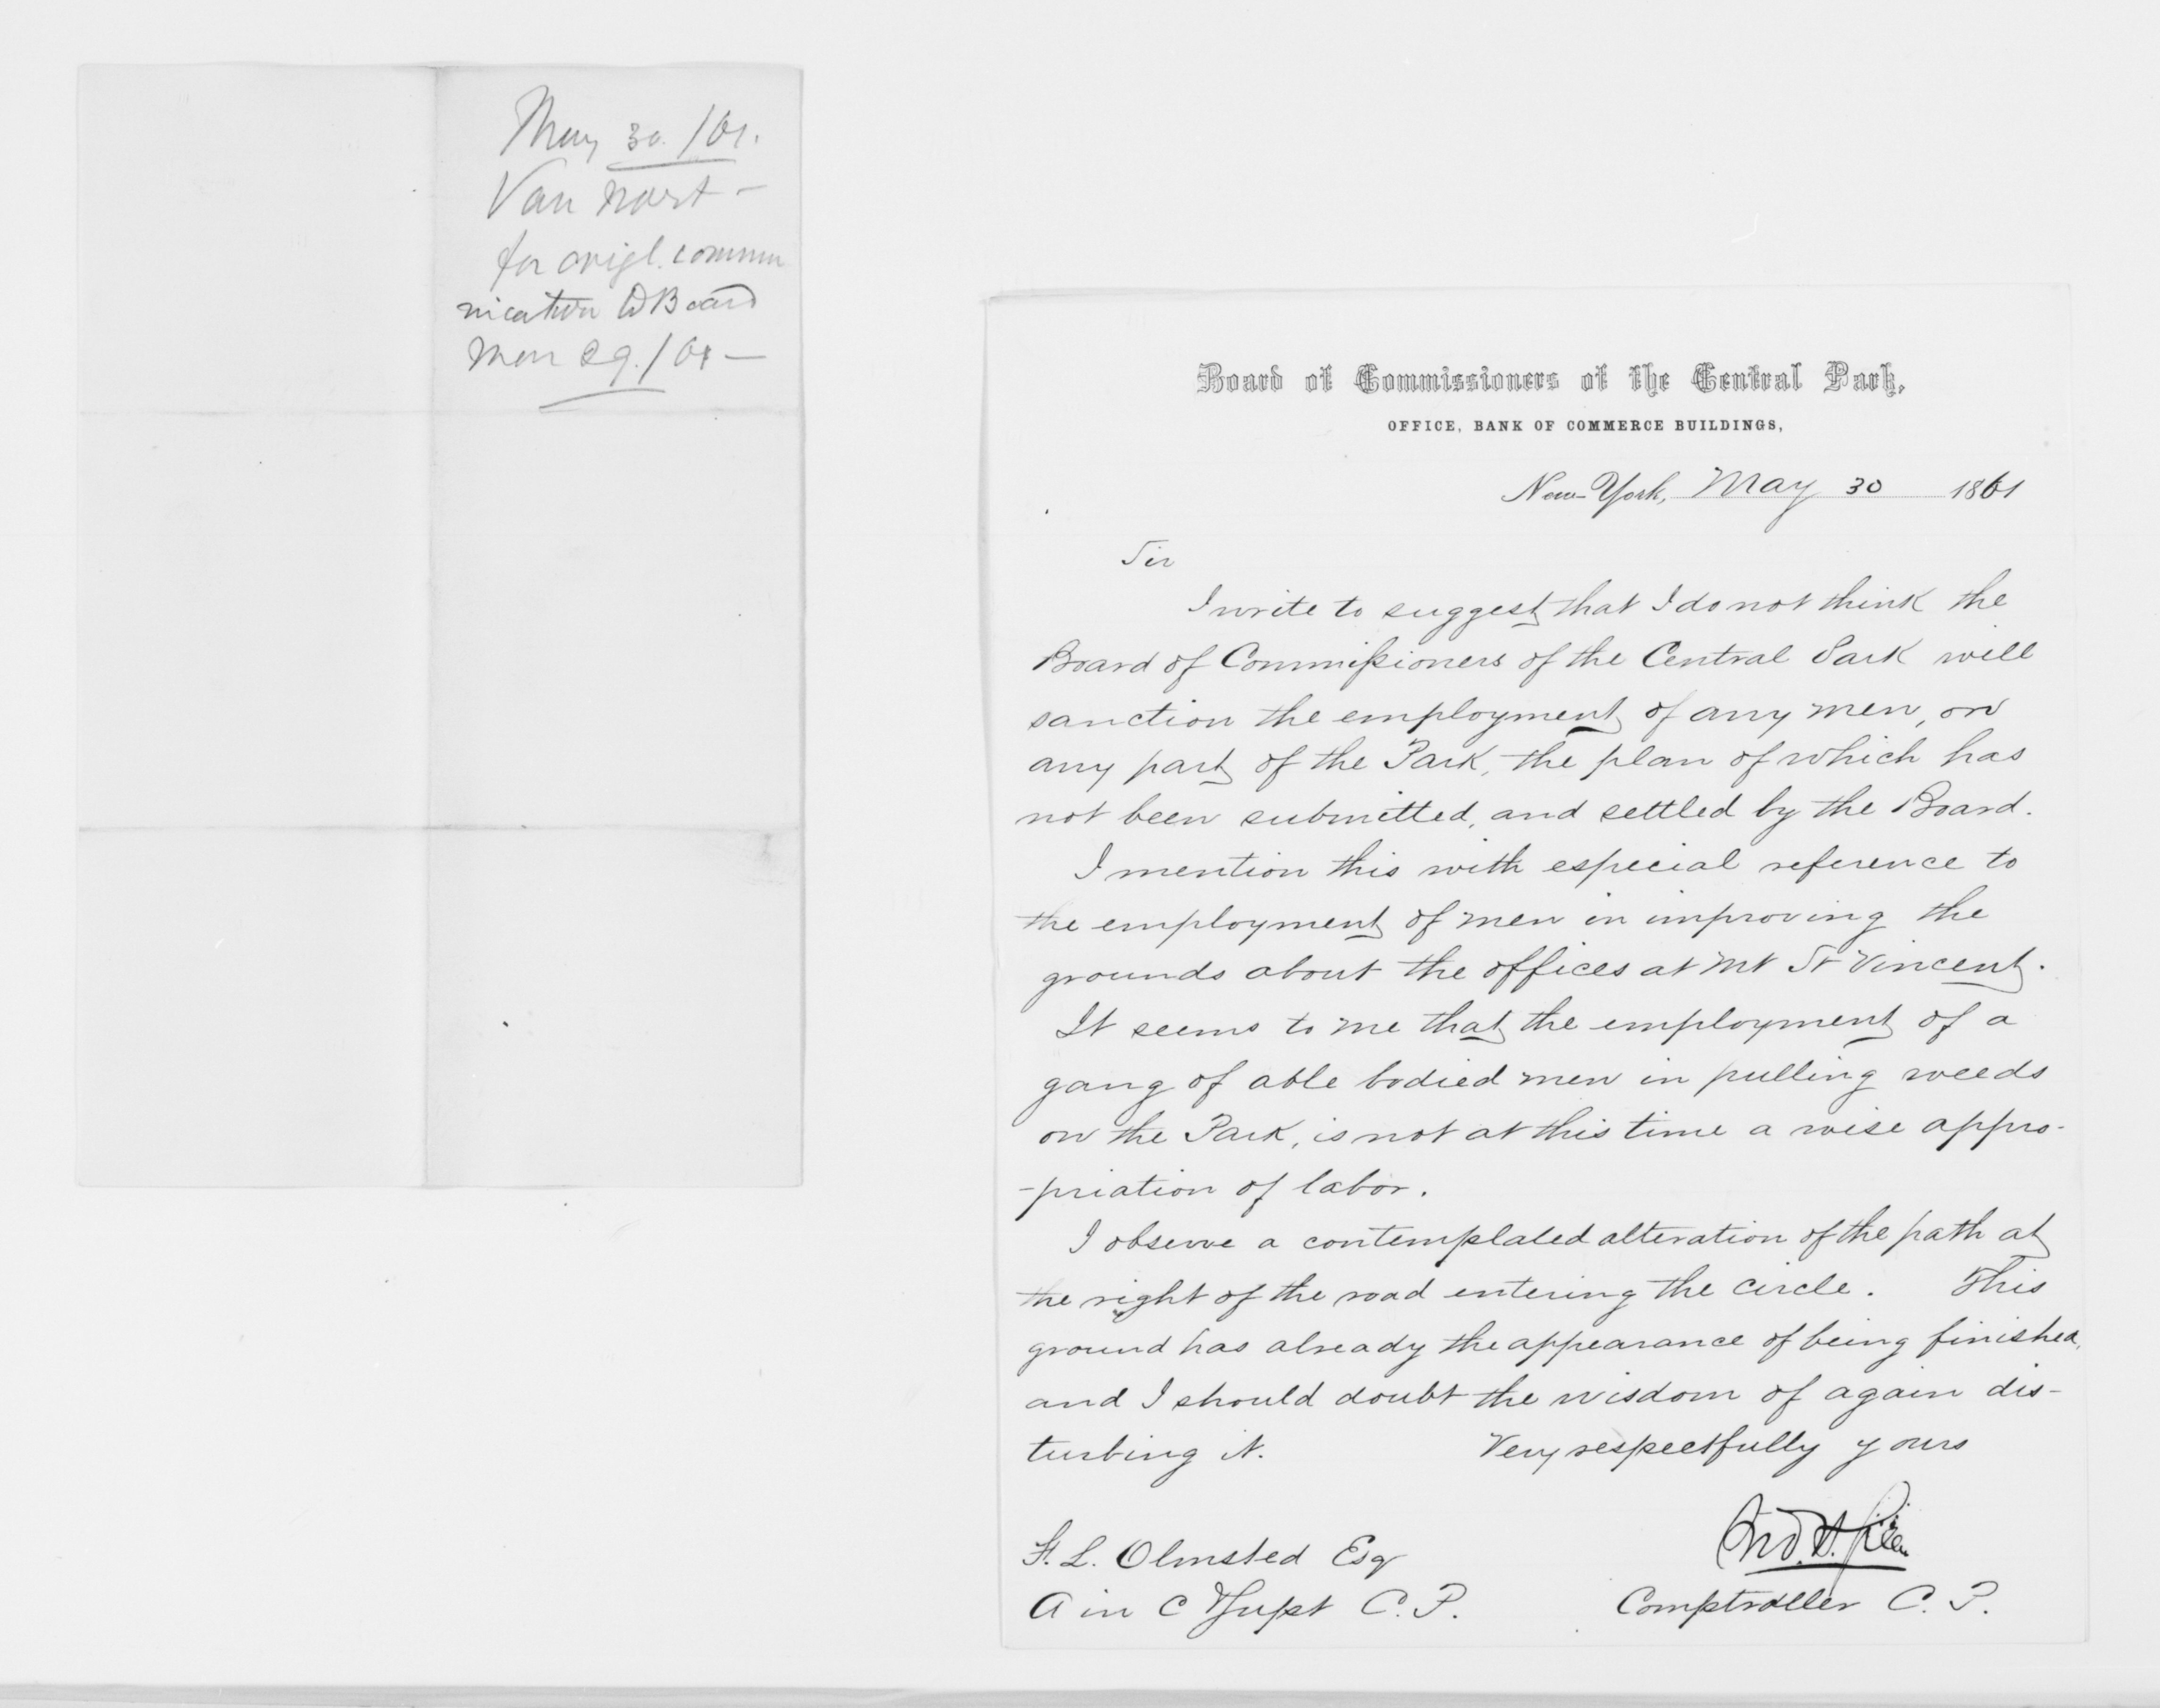 May 30. /61.
Van Nort -
for origl. commu
nication to Board
May 29. / 61 -
Board of Commissioners of the Central Park,
OFFICE, BANK OF COMMERCE BUILDINGS,
New-York, May 30 1861
Sir
I write to suggest that I do not think the
Board of Commissioners of the Central Park will
sanction the employment of any men, on
any part of the Park, the plan of which has
not been submitted, and settled by the Board.
I mention this with especial reference to
the employment of men in improving the
grounds about the offices at Mt St Vincent.
It seems to me that the employment of a
gang of able bodied men in pulling weeds
on the Park, is not at this time a wise appro-
-priation of labor.
I observe a contemplated alteration of the path at
the right of the road entering the circle. This
ground has already the appearance of being finished,
and I should doubt the wisdom of again dis-
turbing it. Very respectfully yours
F. L. Olmsted Esq
A in C & Supt C. P.
Comptroller C. P.